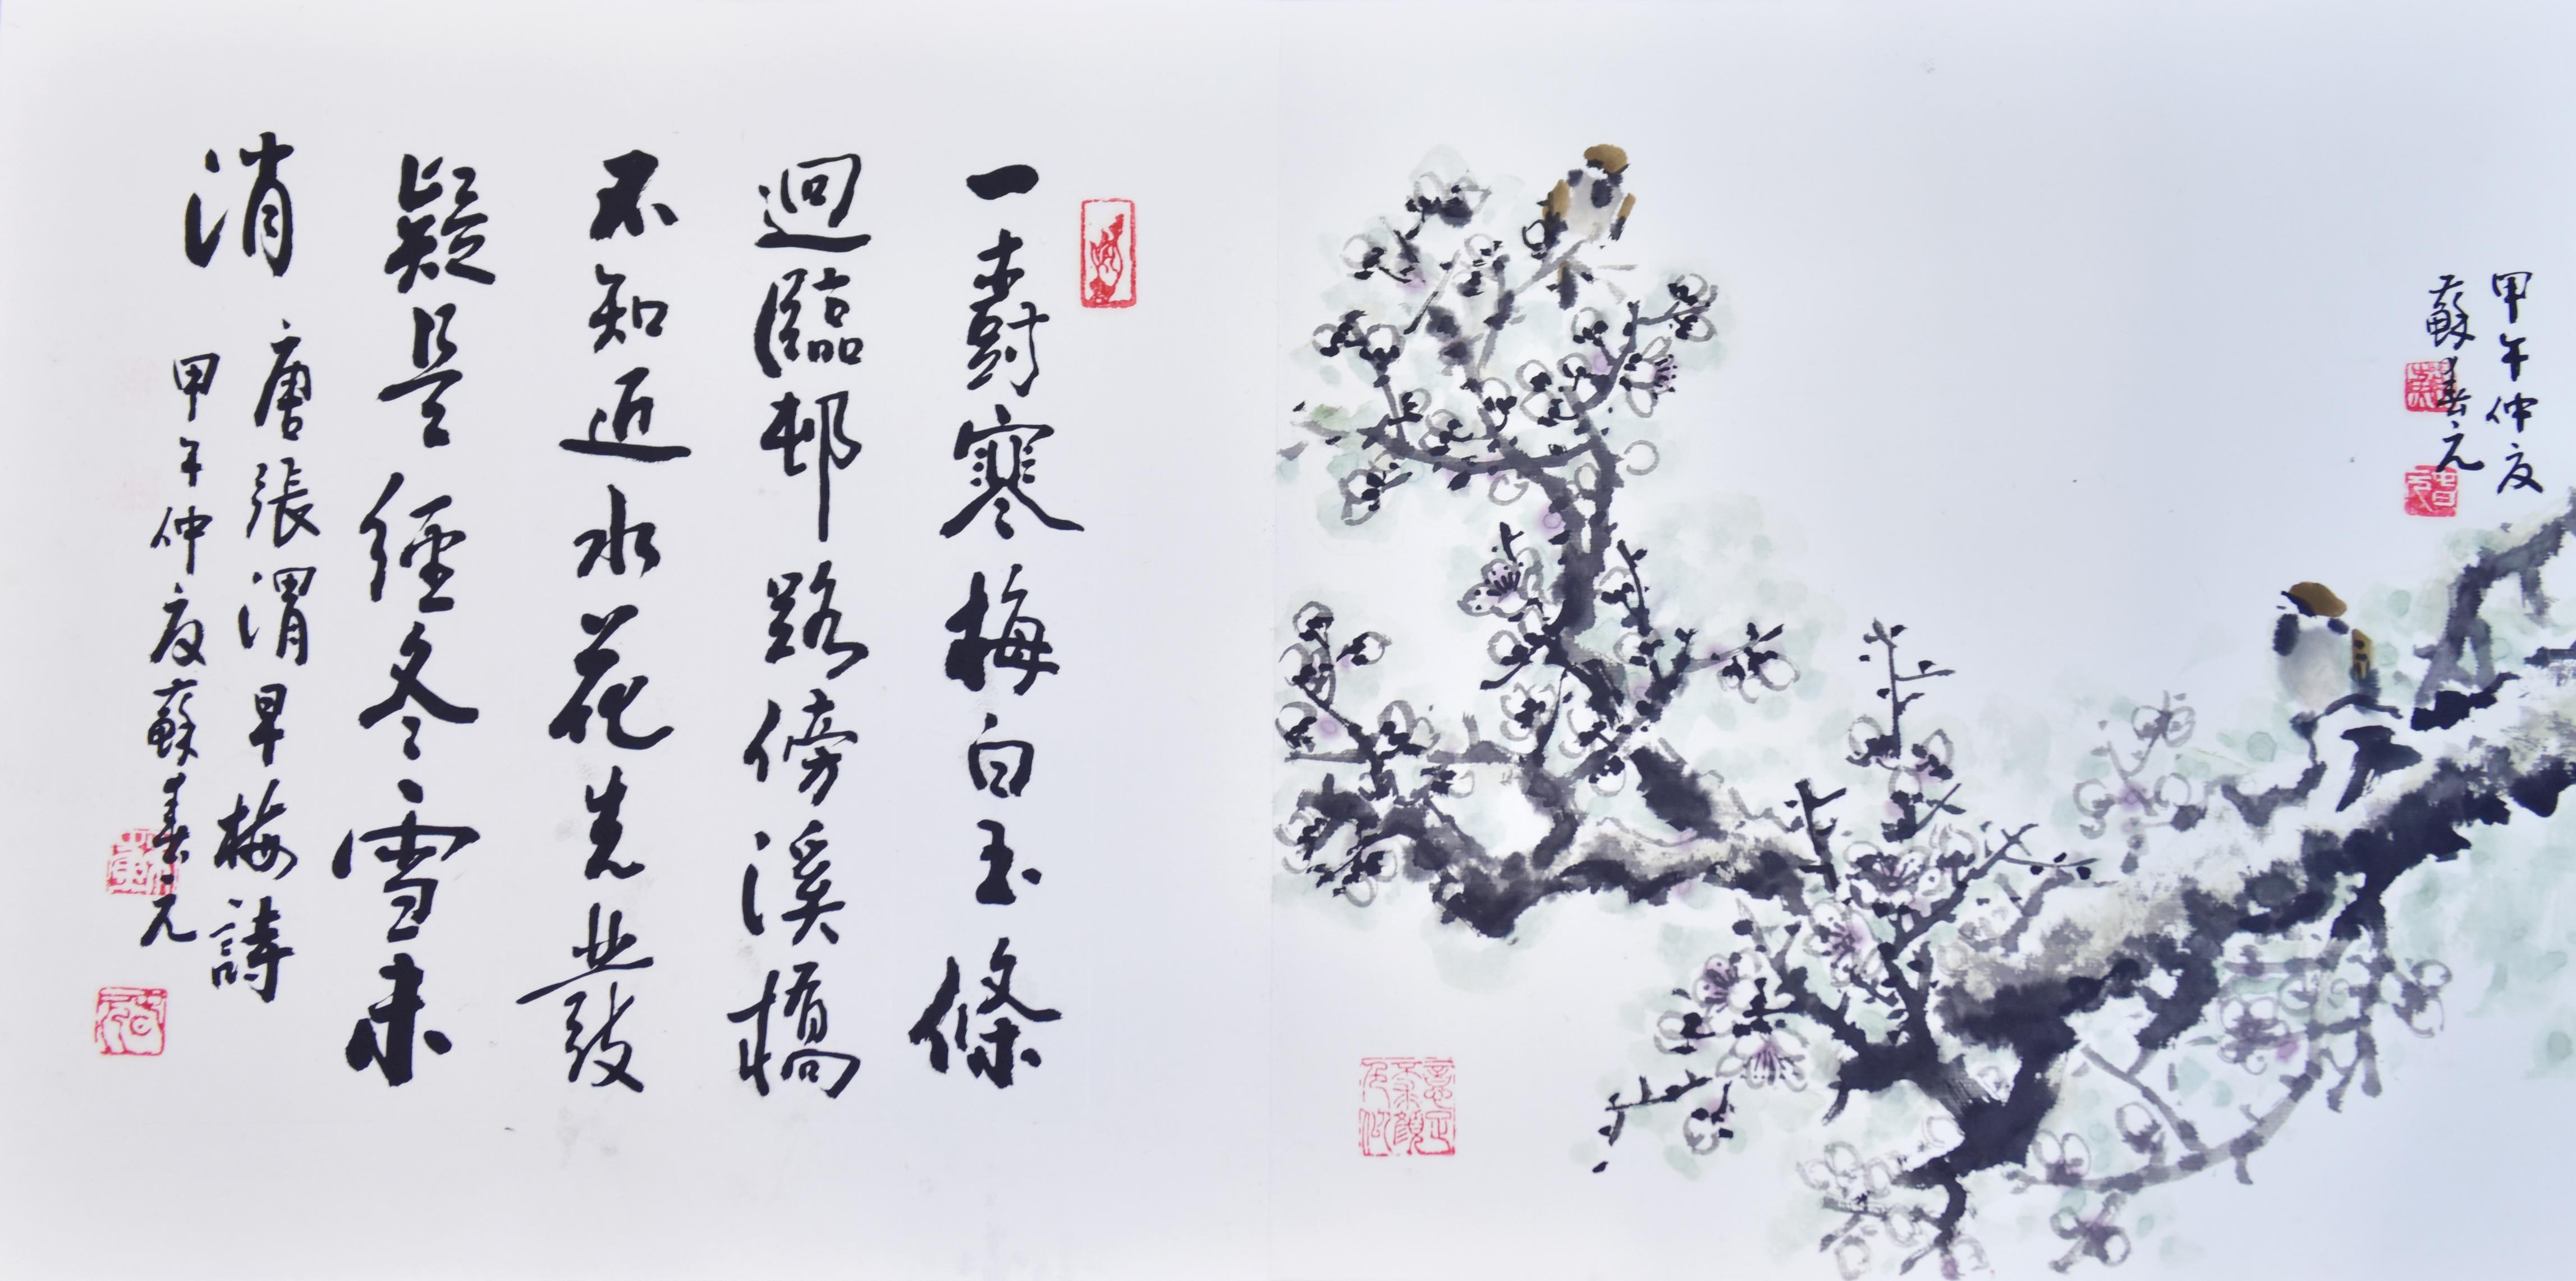 甲午仲夏
蘇春元
一樹寒梅白玉條
迥臨邨路傍溪橋
不知近水花先發
疑是經冬雪未
消
唐張渭早梅詩
甲午仲夏蘇春元